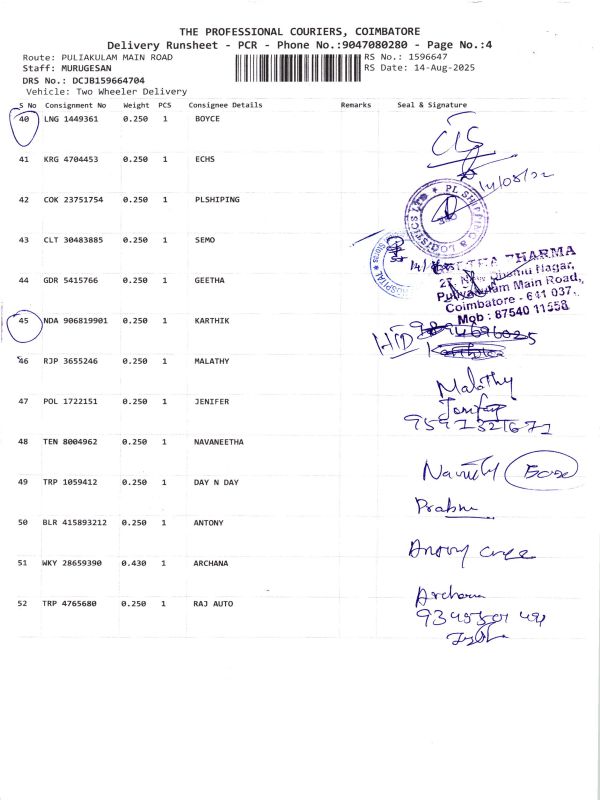 THE PROFESSIONAL COURIERS, COIMBATORE
Delivery Runsheet - PCR - Phone No.:9047080280 - Page No.:4
Route: PULIAKULAM MAIN ROAD RS No.: 1596647
Staff: MURUGESAN RS Date: 14-Aug-2025
DRS No.: DCJB159664704
Vehicle: Two Wheeler Delivery
S No Consignment No Weight PCS Consignee Details Remarks Seal & Signature
40 LNG 1449361 0.250 1 BOYCE
41 KRG 4704453 0.250 1 ECHS
42 COK 23751754 0.250 1 PLSHIPING
PL SHIPPING & LOGISTICS
43 CLT 30483885 0.250 1 SEMO
HOSPITAL
PHARMA
44 GDR 5415766 0.250 1 GEETHA
Nagar,
Puliyakulam Main Road,
Coimbatore - 641 037.
Mob : 87540 11558
45 NDA 906819901 0.250 1 KARTHIK
46 RJP 3655246 0.250 1 MALATHY
Malathy
47 POL 1722151 0.250 1 JENIFER
48 TEN 8004962 0.250 1 NAVANEETHA
49 TRP 1059412 0.250 1 DAY N DAY
Prabhu
50 BLR 415893212 0.250 1 ANTONY
51 WKY 28659390 0.430 1 ARCHANA
Archana
52 TRP 4765680 0.250 1 RAJ AUTO